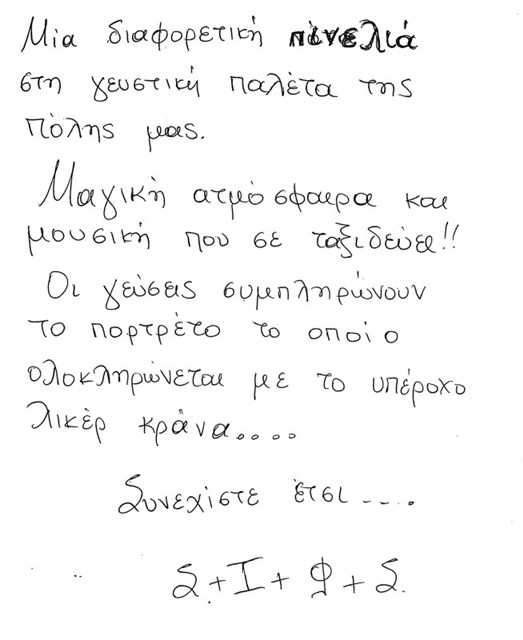 Μία διαφορετική πινελιά
στη γευστική παλέτα της
πόλης μας.
Μαγική ατμόσφαιρα και
μουσική που σε ταξιδεύει!!
Οι γεύσεις συμπληρώνουν
το πορτρέτο το οποίο
ολοκληρώνεται με το υπέροχο
λικέρ κράνα....
Συνεχίστε έτσι ....
Σ+Ι+Φ+Σ.